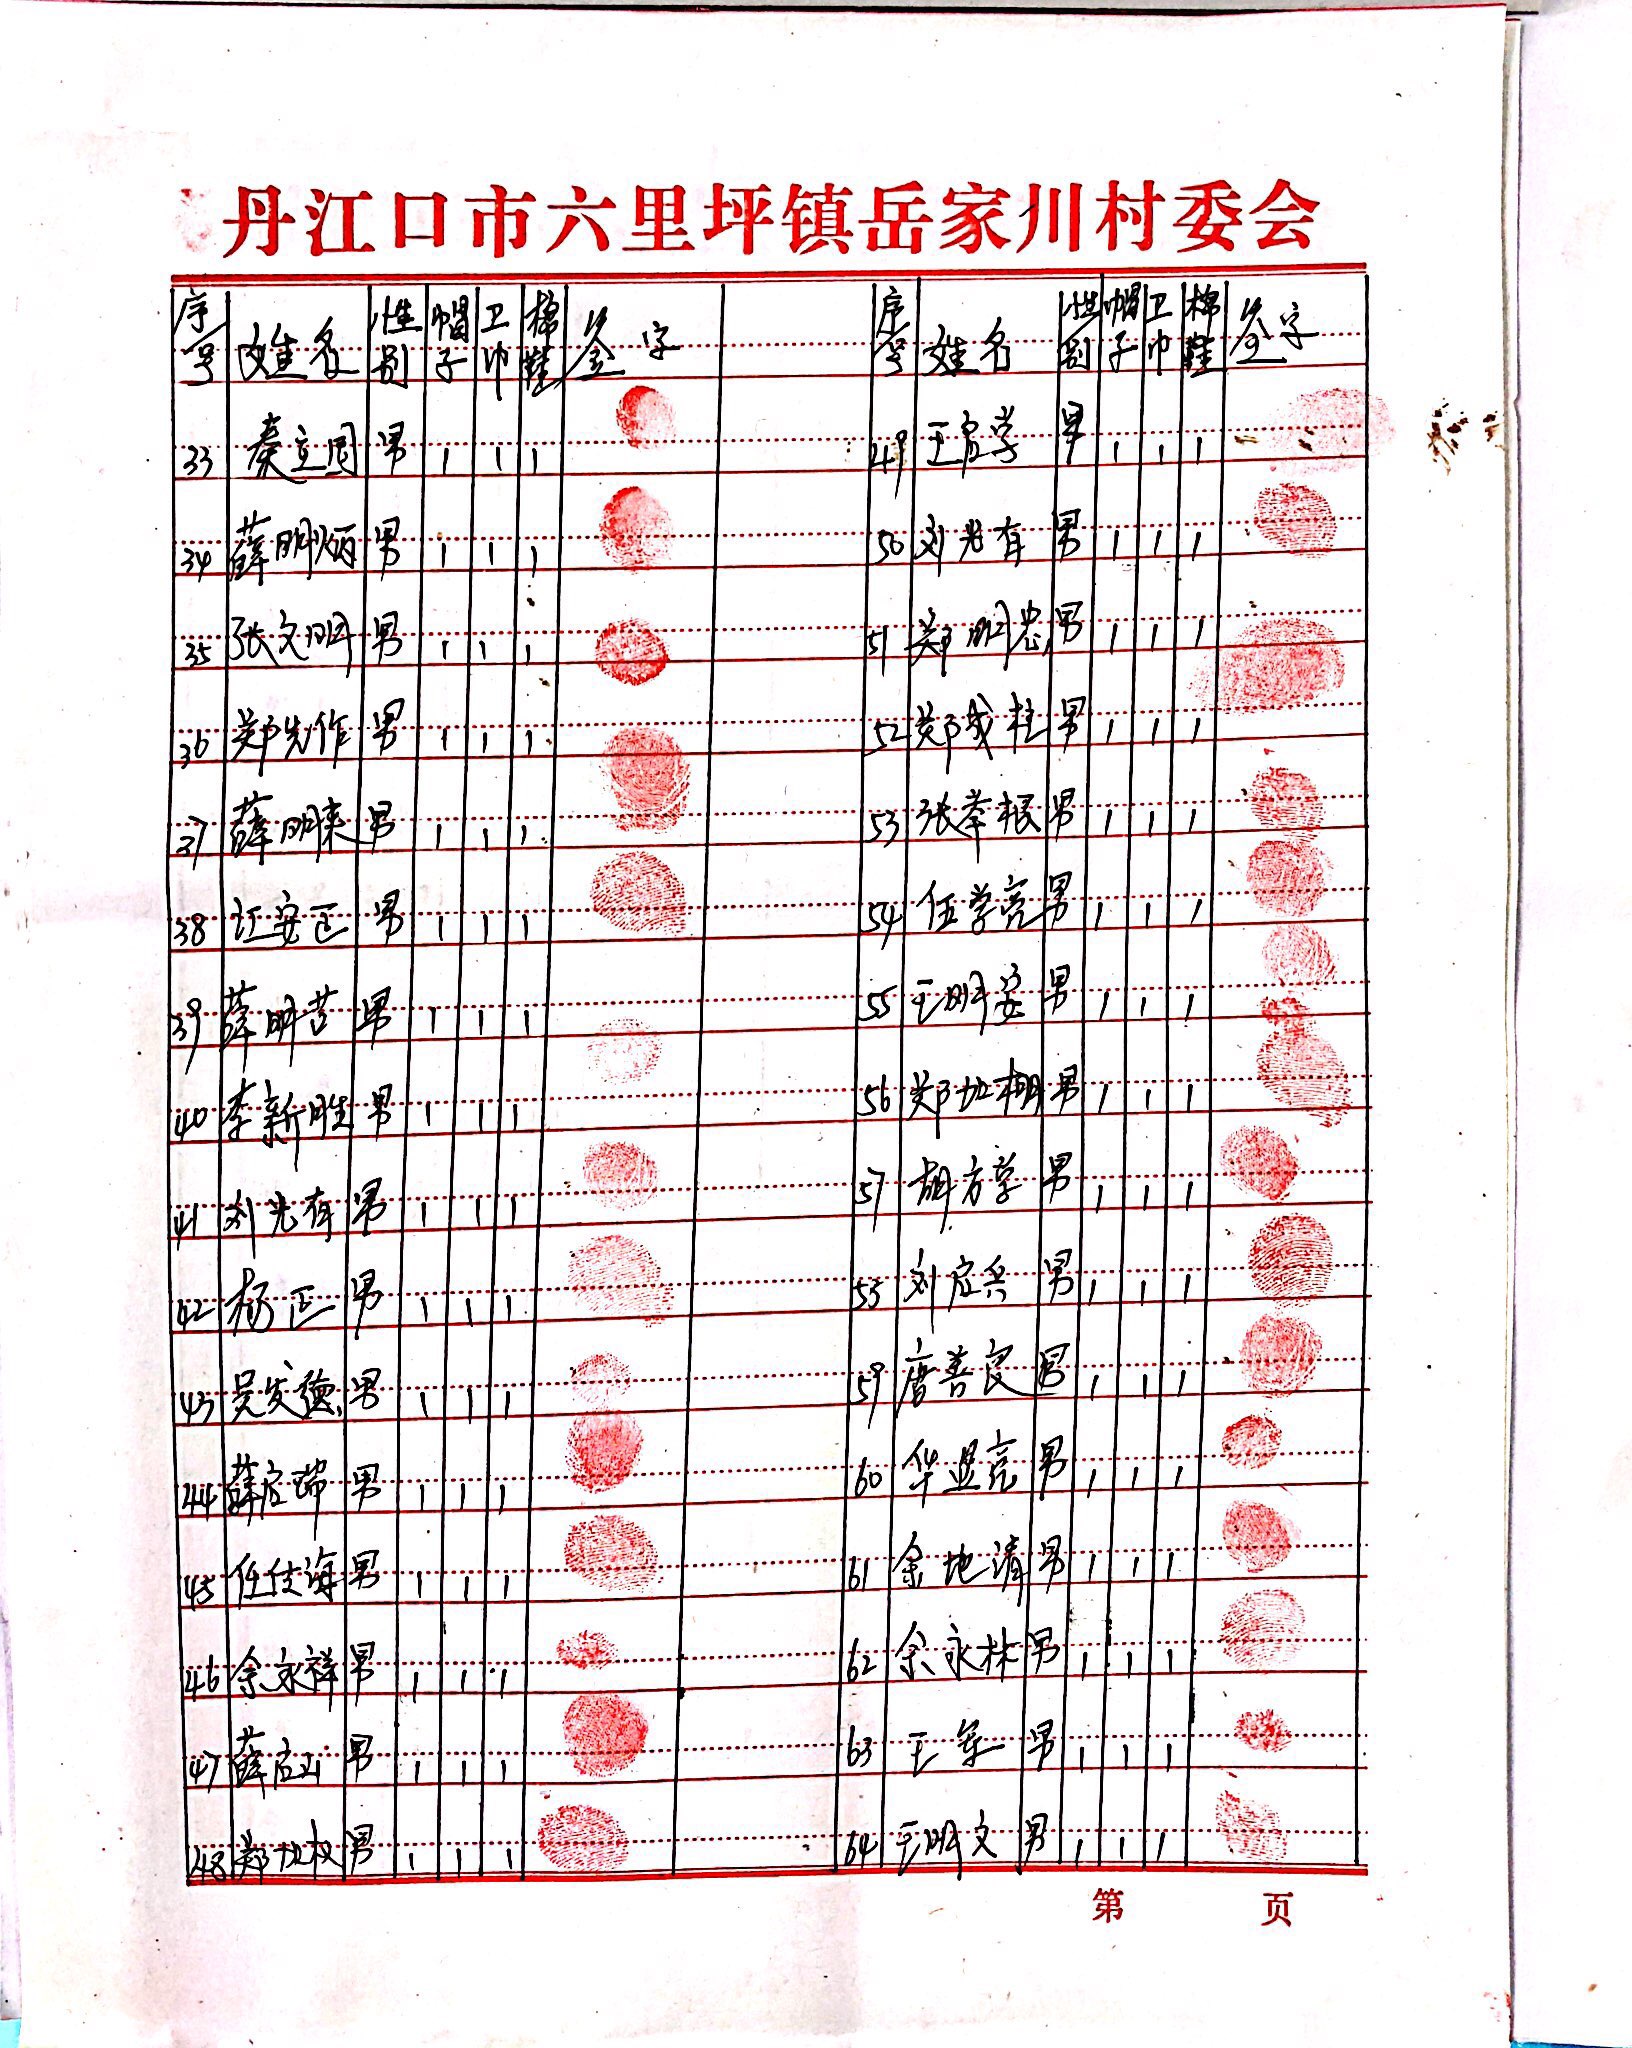 丹江口市六里坪镇岳家川村委会
序号 姓名 性别 帽子 卫巾 棉鞋 签字 序号 姓名 性别 帽子 卫巾 棉鞋 签字
33 秦立同 男 1 1 1 49 王官学 男 1 1 1
34 薛明炳 男 1 1 1 50 刘光有 男 1 1 1
35 张文明 男 1 1 1 51 郑明忠 男 1 1 1
36 郑先作 男 1 1 1 52 郑成柱 男 1 1 1
37 薛明来 男 1 1 1 53 张举根 男 1 1 1
38 江安正 男 1 1 1 54 伍学亮 男 1 1 1
39 薛明苦 男 1 1 1 55 王明安 男 1 1 1
40 李新胜 男 1 1 1 56 郑加棚 男 1 1 1
41 刘光有 男 1 1 1 57 胡方学 男 1 1 1
42 杨正 男 1 1 1 53 刘应兵 男 1 1 1
43 吴发德 男 1 1 1 59 唐善良 男 1 1 1
44 薛启瑞 男 1 1 1 60 华显亮 男 1 1 1
45 任仕海 男 1 1 1 61 余地清 男 1 1 1
46 余永祥 男 1 1 1 62 余永林 男 1 1 1
47 薛启山 男 1 1 1 63 王军 男 1 1 1
48 郑加权 男 1 1 1 64 王明文 男 1 1 1
第 页